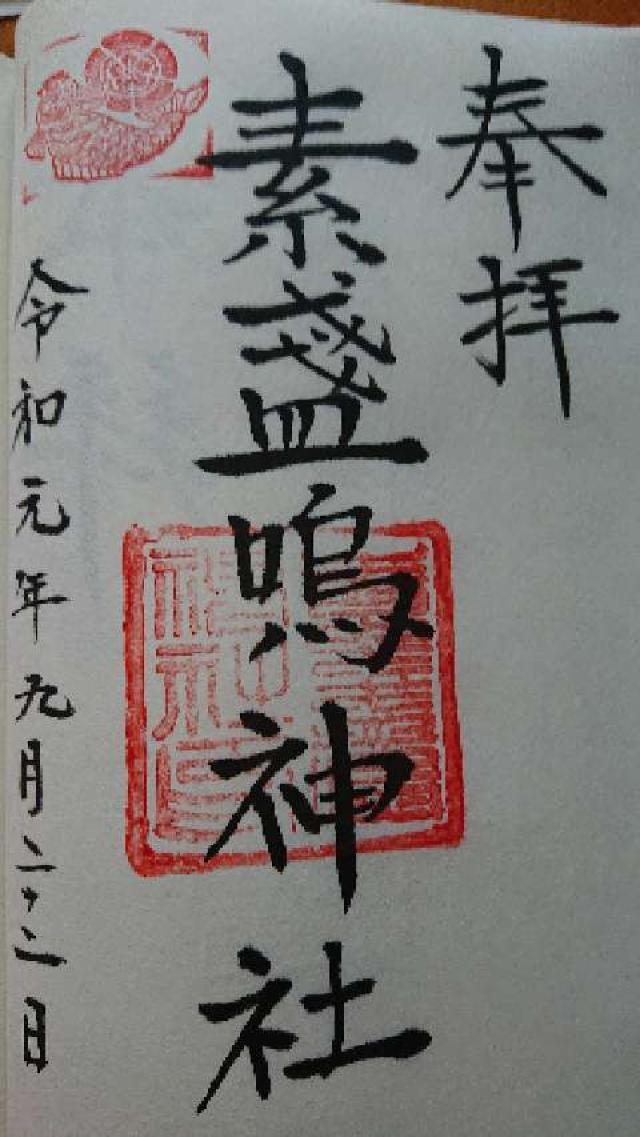 奉拝
素盞嗚神社
令和元年九月二十二日